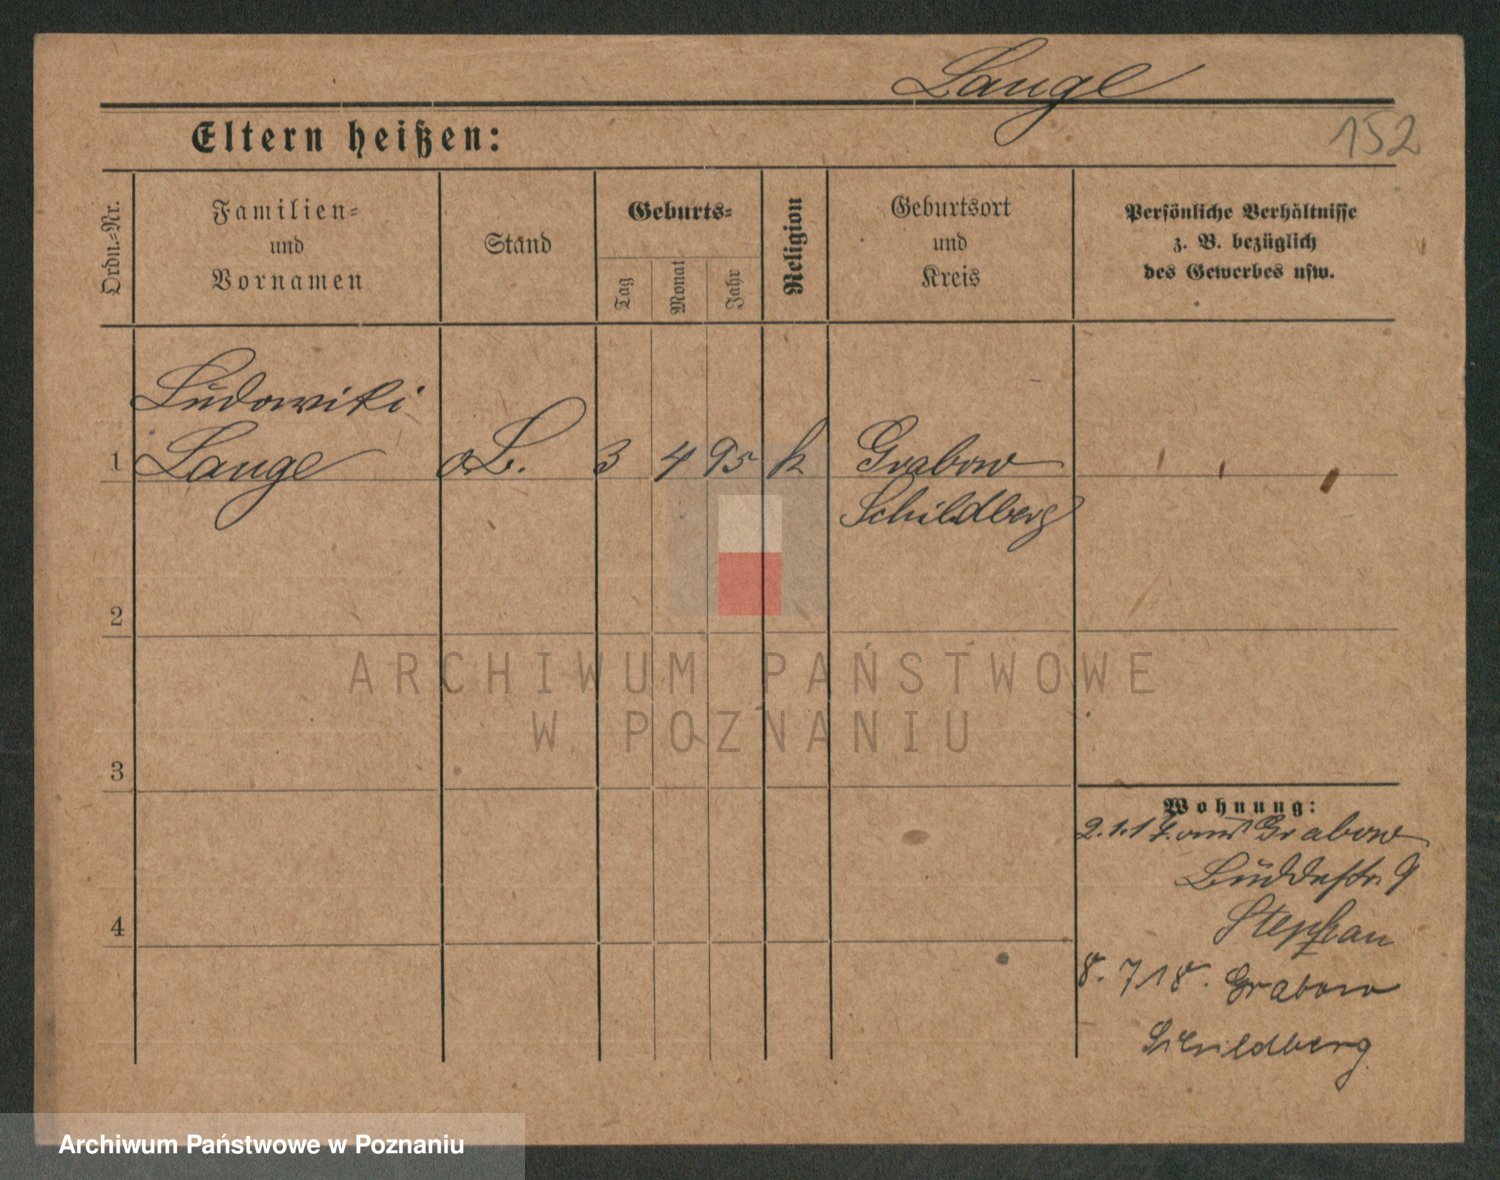 Lange
152
Eltern heißen:
Ordn.-Nr.
Familien-
und
Vornamen
Stand
Geburts-
Tag
Monat
Jahr
Religion
Geburtsort
und
Kreis
Persönliche Verhältnisse
z. B. bezüglich
des Gewerbes usw.
Ludowiki
1 Lange oL. 3 4 95 k Grabow
Schildberg
2
ARCHIWUM PAŃSTWOWE
W POZNANIU
3
Wohnung:
2.1.17 Grabow
9
Stephan
4
8. 7 18. Grabow
Schildberg
Archiwum Państwowe w Poznaniu